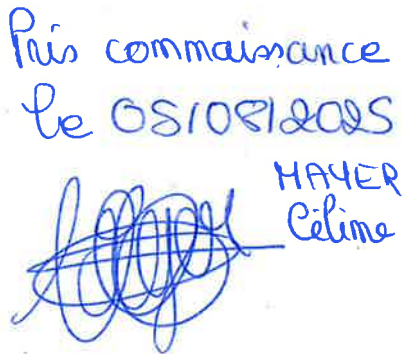 Pris connaissance
le 05/08/2025
MAYER
Céline